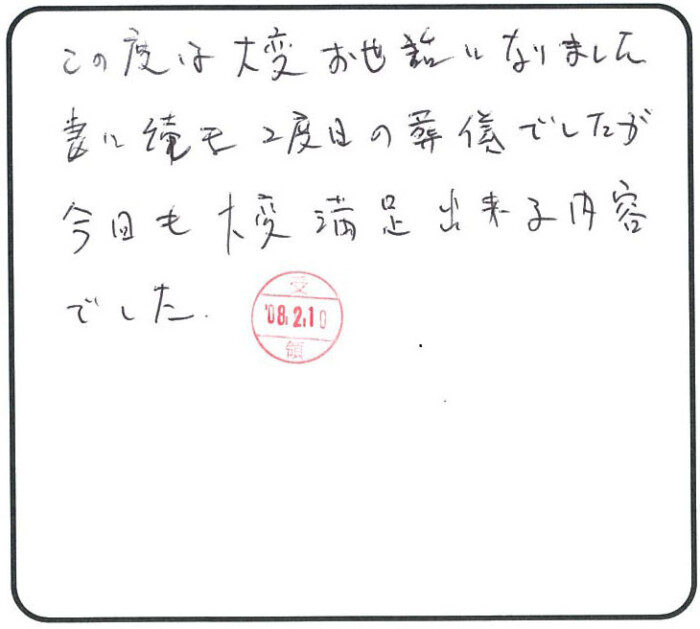 この度は大変お世話になりました
妻に続き2度目の葬儀でしたが
今回も大変満足出来る内容
でした.
受
'08.2.10
領